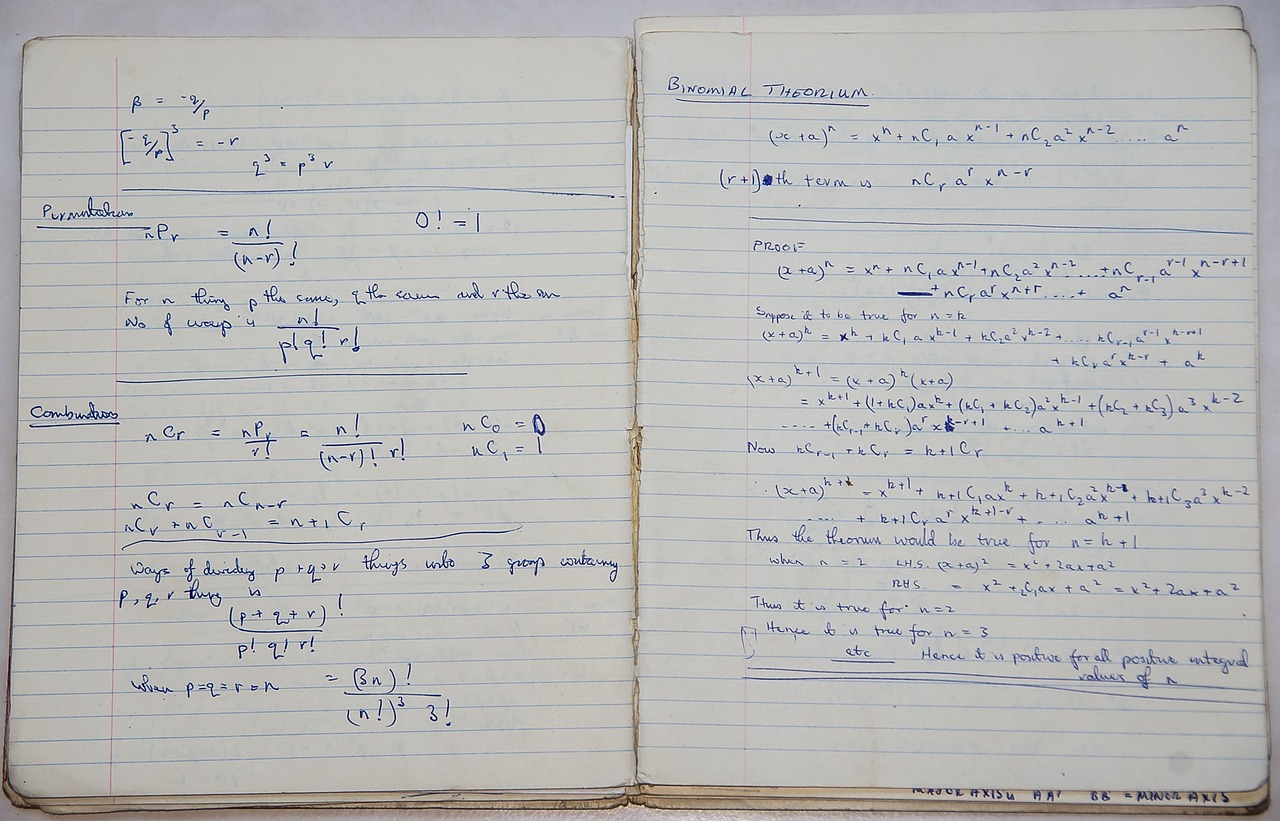 β = -q/p
[-q/p]³ = -r
q³ = p³ r
Permutations
nPr = n!/(n-r)! 0! = 1
For n thing p the same, q the same and r the
No of ways is n!/p! q! r!
Combinations
nCr = nPr/r! = n!/(n-r)! r! nC₀ = 0
nC₁ = 1
nCr = nCn-r
nCr + nCr-1 = n+1Cr
Ways of dividing p + q + r things into 3 group containing
p, q, r things is
(p + q + r)!/p! q! r!
When p = q = r = n = (3n)!/(n!)³ 3!
BINOMIAL THEORIUM
(x+a)ⁿ = xⁿ + nC₁ a xⁿ⁻¹ + nC₂a² xⁿ⁻² .... aⁿ
(r+1)th term is nCr aʳ xⁿ⁻ʳ
PROOF
(x+a)ⁿ = xⁿ + nC₁ a xⁿ⁻¹ + nC₂a² xⁿ⁻² ..... + nCr-1 aʳ⁻¹ xⁿ⁻ʳ⁺¹
+ nCr aʳ xⁿ⁺ʳ ....+ aⁿ
Suppose it to be true for n = k
(x+a)ᵏ = xᵏ + kC₁ a xᵏ⁻¹ + kC₂a² xᵏ⁻² + ..... kCr-1 aʳ⁻¹ xᵏ⁻ʳ⁺¹
+ kCr aʳ xᵏ⁻ʳ + aᵏ
(x+a)ᵏ⁺¹ = (x+a)ᵏ(x+a)
= xᵏ⁺¹ + (1+kC₁)axᵏ + (kC₁ + kC₂)a²xᵏ⁻¹ + (kC₂ + kC₃)a³xᵏ⁻²
.... + (kCr-1 + kCr)aʳ xᵏ⁻ʳ⁺¹ + ... aᵏ⁺¹
Now kCr-1 + kCr = k+1Cr
∴ (x+a)ᵏ⁺¹ = xᵏ⁺¹ + k+1C₁axᵏ + k+1C₂a²xᵏ⁻¹ + k+1C₃a³xᵏ⁻²
.... + k+1Cr aʳ xᵏ⁺¹⁻ʳ + .... aᵏ⁺¹
Thus the theorum would be true for n = k+1
when n = 2 L.H.S. (x+a)² = x² + 2ax + a²
R.H.S. = x² + ₂C₁ax + a² = x² + 2ax + a²
Thus it is true for n = 2
Hence it is true for n = 3
etc Hence it is positive for all positive integral
values of n
MAJOR AXIS is AA' BB = MINOR AXIS